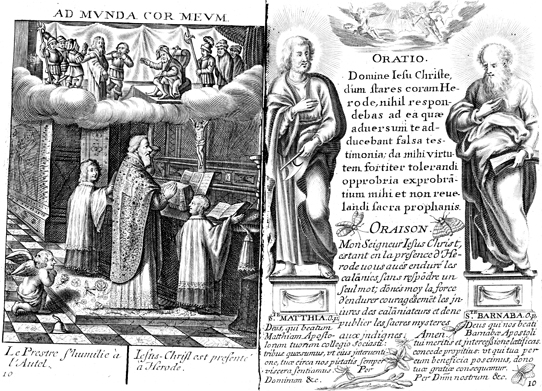 AD MVNDA COR MEVM.
Le Prestre s'humilie à l'Autel.
Iesus-Christ est presenté à Herode.
10
ORATIO.
Domine Iesu Christe,
dum stares coram He-
rode, nihil respon-
debas ad ea quæ
aduersum te ad-
ducebant falsa tes-
timonia; da mihi virtu-
tem fortiter tolerandi
opprobria exprobrā-
tium mihi et non reue-
landi sacra prophanis.
ORAISON.
Mon Seigneur Iesus Christ,
estant en la presence d'He-
rode vous aués enduré les
calānies sans respōdre un
seul mot; donés moy la force
d'endurer courageusemēt les in-
iures des calāniateurs et de ne
publier les sacres mysteres
aux indignes. Amen.
Sts. MATTHIA. Ap.
Deus, qui beatum
Matthiam Aposto-
lorum tuorum collegio sociasti:
tribue quæsumus, vt eius interuenti-
one, tuæ circa nos pietatis semper
viscera sentiamus. Per
Dominum &c.
Sts. BARNABA. Ap.
Deus qui nos beati
Barnabæ Apostoli
tui meritis et interceßione lætificas,
concede propitius: vt qui tua per
eum beneficia poscimus, dono
tuæ gratiæ consequamur.
Per Dominum nostrum &c.
10